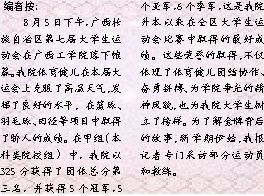 编者按:
8月5日下午,广西壮
族自治区第七届大学生运
动会在广西工学院落下帷
幕。我院体育健儿在本届大
运会上克服了高温天气,发
挥了良好的水平,在篮球、
羽毛球、田径等项目中取得
了骄人的成绩。在甲组(本
科类院校组)中,我院以
325分获得了团体总分第
三名,并获得5个冠军,5
个亚军,6个季军,这是我院
升本以来在全区大学生运
动会比赛中取得的最好成
绩。这些荣誉的取得,不仅
体现了体育健儿团结协作、
奋勇拼搏、为学院争光的精
神风貌,也为我院大学生树
立了榜样。为了解金牌背后
的故事,新学期伊始,我报
记者专门采访部分运动员
和教练。